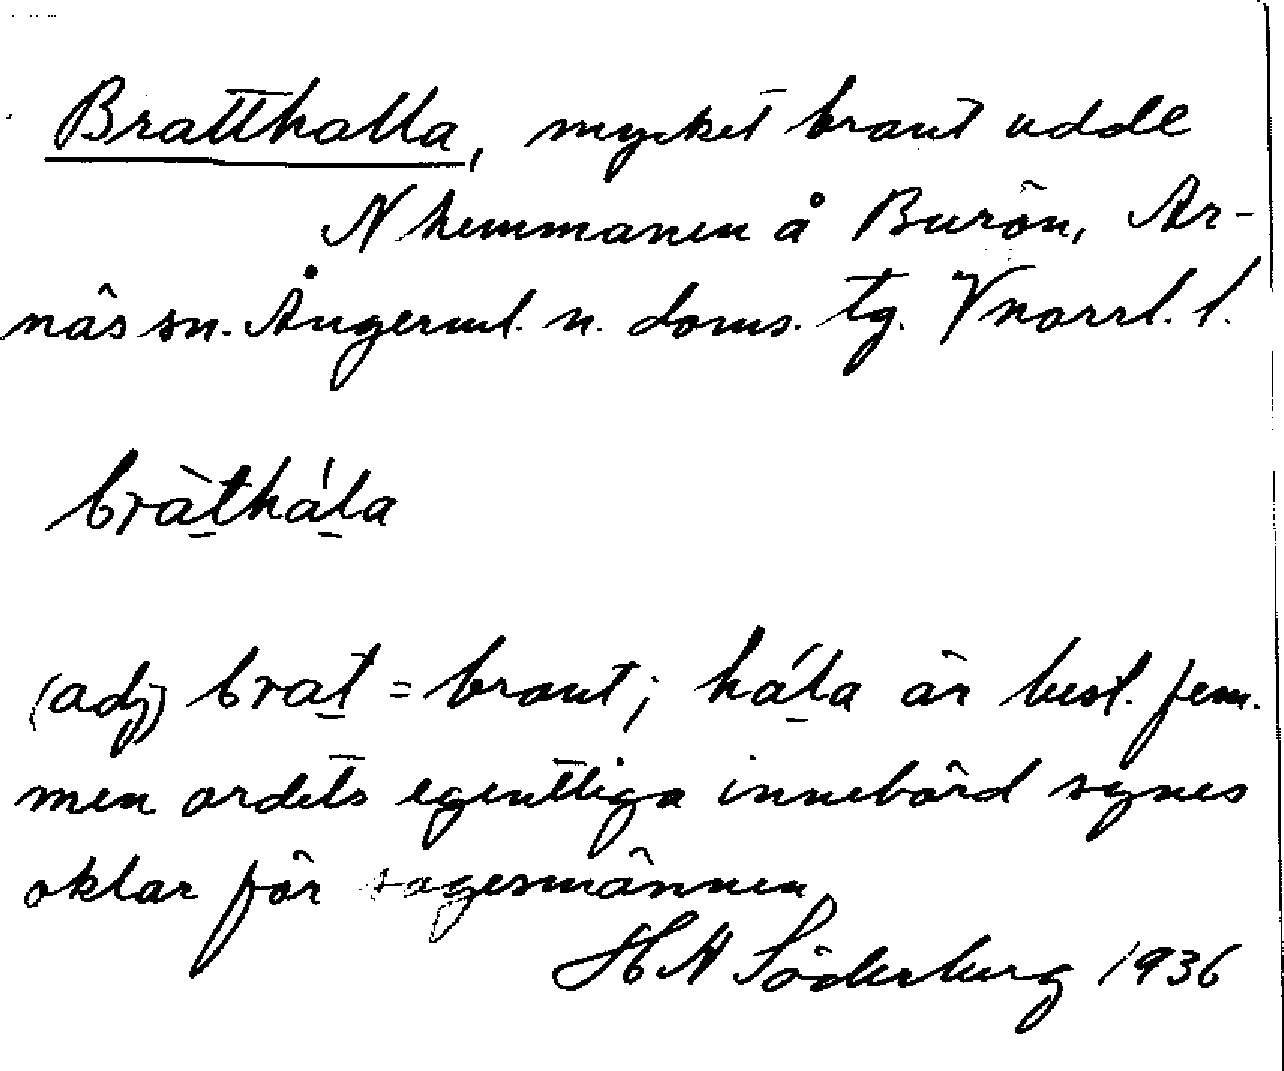 Bratthalla, mycket brant udde
N hemmanen å Burön, Ar-
näs sn. Ångerml. n. doms. tg. Vnorrl. l.
bràthála
(adj) brat = brant; hála är best. fem.
men ordets egentliga innebörd synes
oklar för sagesmännen
H A Söderberg 1936